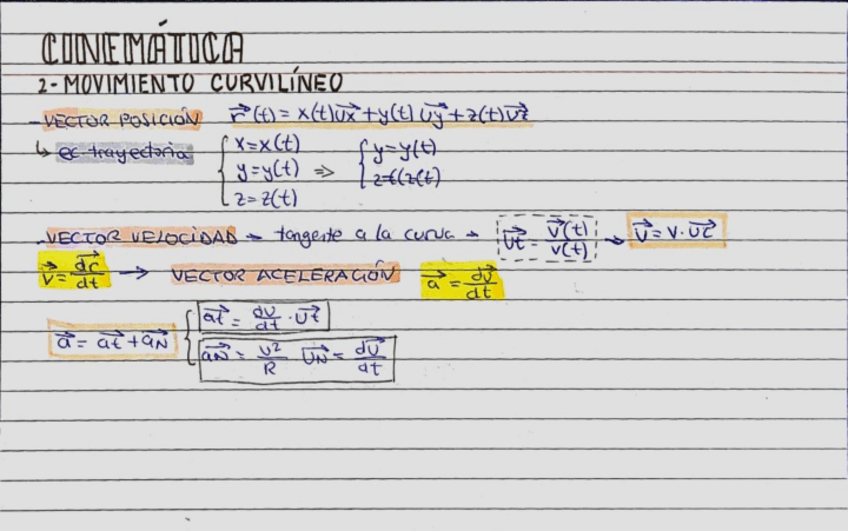 CINEMÁTICA
2- MOVIMIENTO CURVILÍNEO
- VECTOR POSICIÓN r⃗(t) = x(t)u⃗x + y(t)u⃗y + z(t)u⃗z
↳ ec. trayectoria { x=x(t) { y=y(t)
y=y(t) ⇒ z=z(t)
z=z(t)
- VECTOR VELOCIDAD → tangente a la curva → u⃗t = v⃗(t)/v(t) → v⃗ = v · u⃗t
v⃗ = dr⃗/dt → VECTOR ACELERACIÓN a⃗ = dv⃗/dt
a⃗ = a⃗t + a⃗N { a⃗t = dv/dt · u⃗t
a⃗N = v²/R u⃗N = dv⃗/dt